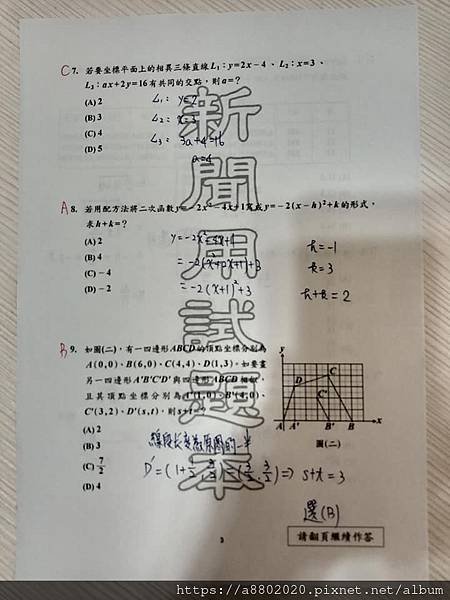 C 7. 若要坐標平面上的相異三條直線L₁：y=2x-4、L₂：x=3、
L₃：ax+2y=16有共同的交點，則a=？
(A) 2 L₁: y=2
(B) 3 L₂: x=3
(C) 4 L₃: 3a+4=16
(D) 5 a=4
A 8. 若用配方法將二次函數y=-2x²-4x+1寫成y=-2(x-h)²+k的形式，
求h+k=？
(A) 2 y=-2x²-4x+1 h=-1
(B) 4 =-2(x²+2x+1)+3 k=3
(C) -4 =-2(x+1)²+3 h+k=2
(D) -2
B 9. 如圖(二)，有一四邊形ABCD的頂點坐標分別為
A(0,0)、B(6,0)、C(4,4)、D(1,3)。如要畫
另一四邊形A'B'C'D'與四邊形ABCD相似，
且其頂點坐標分別為A'(1,0)、B'(4,0)、
C'(3,2)、D'(s,t)，則s+t=？
(A) 2 線段長度為原圖的一半
(B) 3
(C) 7/2 D'=(1+1/2, 3/2)=(3/2, 3/2)⇒ s+t=3
(D) 4
選(B)
y
D
C
C'
A A' B' B x
圖(二)
請翻頁繼續作答
3
新聞用試題本
https://a8802020.pixnet.net/album